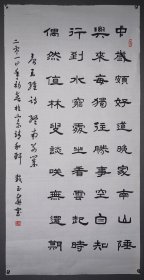 中歲頗好道晚家南山陲
興來每獨往勝事空自知
行到水窮處坐看雲起時
偶然值林叟談咲無還期
王維詩終南別業
二零一〇年初春於
書